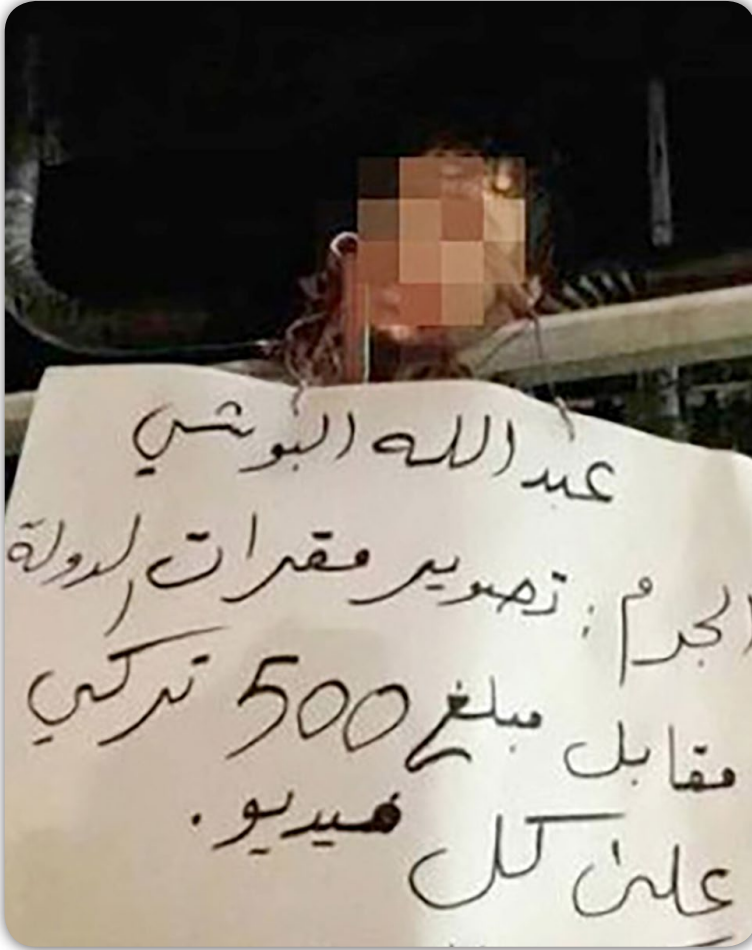 عبد الله البوشي
الجرم : تصوير مقرات الدولة
مقابل مبلغ 500 تركي
على كل فيديو .